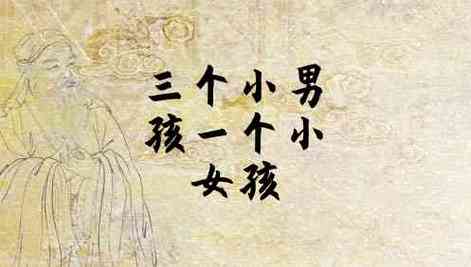 三个小男
孩一个小
女孩